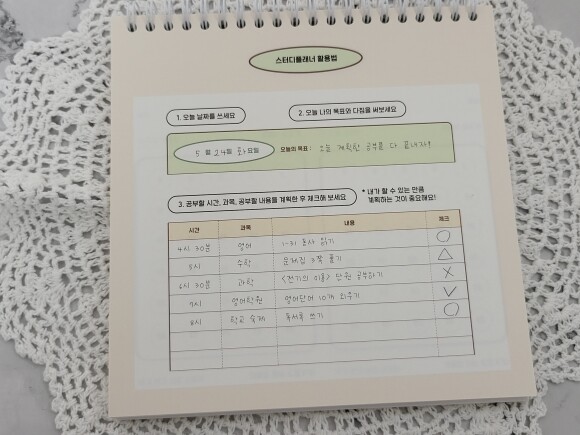 스터디플래너 활용법
1. 오늘 날짜를 쓰세요
2. 오늘 나의 목표와 다짐을 써보세요
5 월 24일 화요일 오늘의 목표 : 오늘 계획한 공부를 다 끝내자!
3. 공부할 시간, 과목, 공부할 내용을 계획한 후 체크해 보세요
* 내가 할 수 있는 만큼
계획하는 것이 중요해요!
시간 과목 내용 체크
4시 30분 영어 1-31 본사 읽기 ○
5시 수학 문제집 3쪽 풀기 △
6시 30분 과학 <전기의 이용> 단원 공부하기 X
7시 영어학원 영어단어 10개 외우기 ✓
8시 학교 숙제 독서록 쓰기 ○